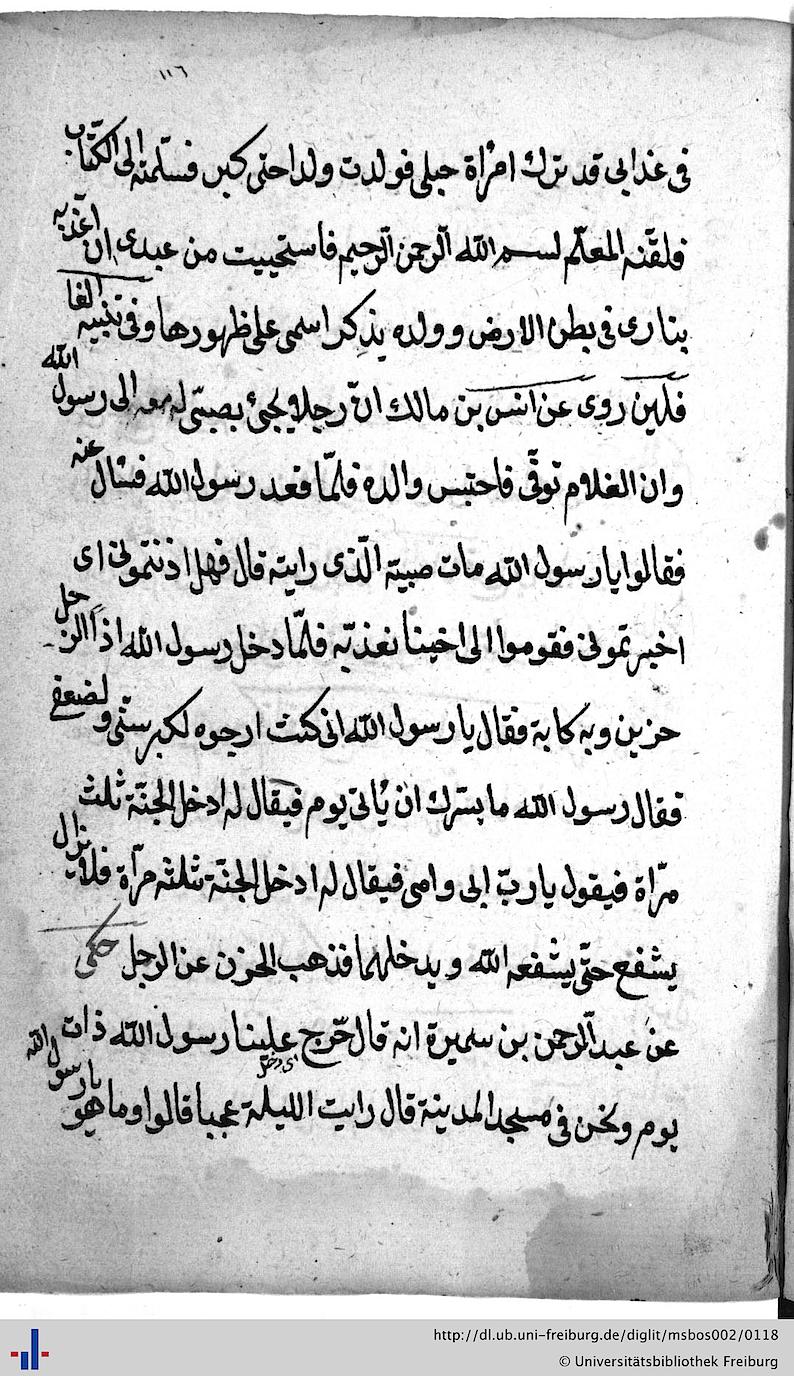 ١١٦
فى عذابى قد ترك امرٔاة حبلى فولدت ولدا حتى كبر فسلّمته الى الكتّاب
فلقّنه المعلّم بسم الله الرّحمن الرّحيم فاستحييت من عبدى ان اعذّبه
بنارى فى بطن الارض وولده يذكر اسمى على ظهورها وفى تنبيه الغا
فلين روى عن انس بن مالك انّ رجلا يجئ بصبىّ له معه الى رسول الله
وان الغلام توفّى فاحتبس والده فلمّا فقد رسول الله فسٔال عنه
فقالوا يا رسول الله مات صبيّه الّذى رايته قال فهل اذنتمونى اى
اخبرتمونى فقوموا الى اخينا نعذّيه فلمّا دخل رسول الله اذا الرجل
حزين وبه كابة فقال يا رسول الله انى كنت ارجوه لكبر سنّى ولضعفى
فقال رسول الله ما يسّرك ان ئاتى يوم فيقال له ادخل الجنّة ثلث
مرّاة فيقول يا ربّ ابى وامى فيقال له ادخل الجنّة ثلثه مرّاة فلا يزال
يشفع حتّى يشفعه الله ويدخلهما فذهب الحزن عن الرجل حكى
عن عبد الرّحمن بن سميرة انه قال خرج علينا رسول الله ذات
اى دخل
يوم ونحن فى مسجد المدينة قال رايت الليلة عجبا قالوا وما هو يا رسول الله
http://dl.ub.uni-freiburg.de/diglit/msbos002/0118
© Universitätsbibliothek Freiburg